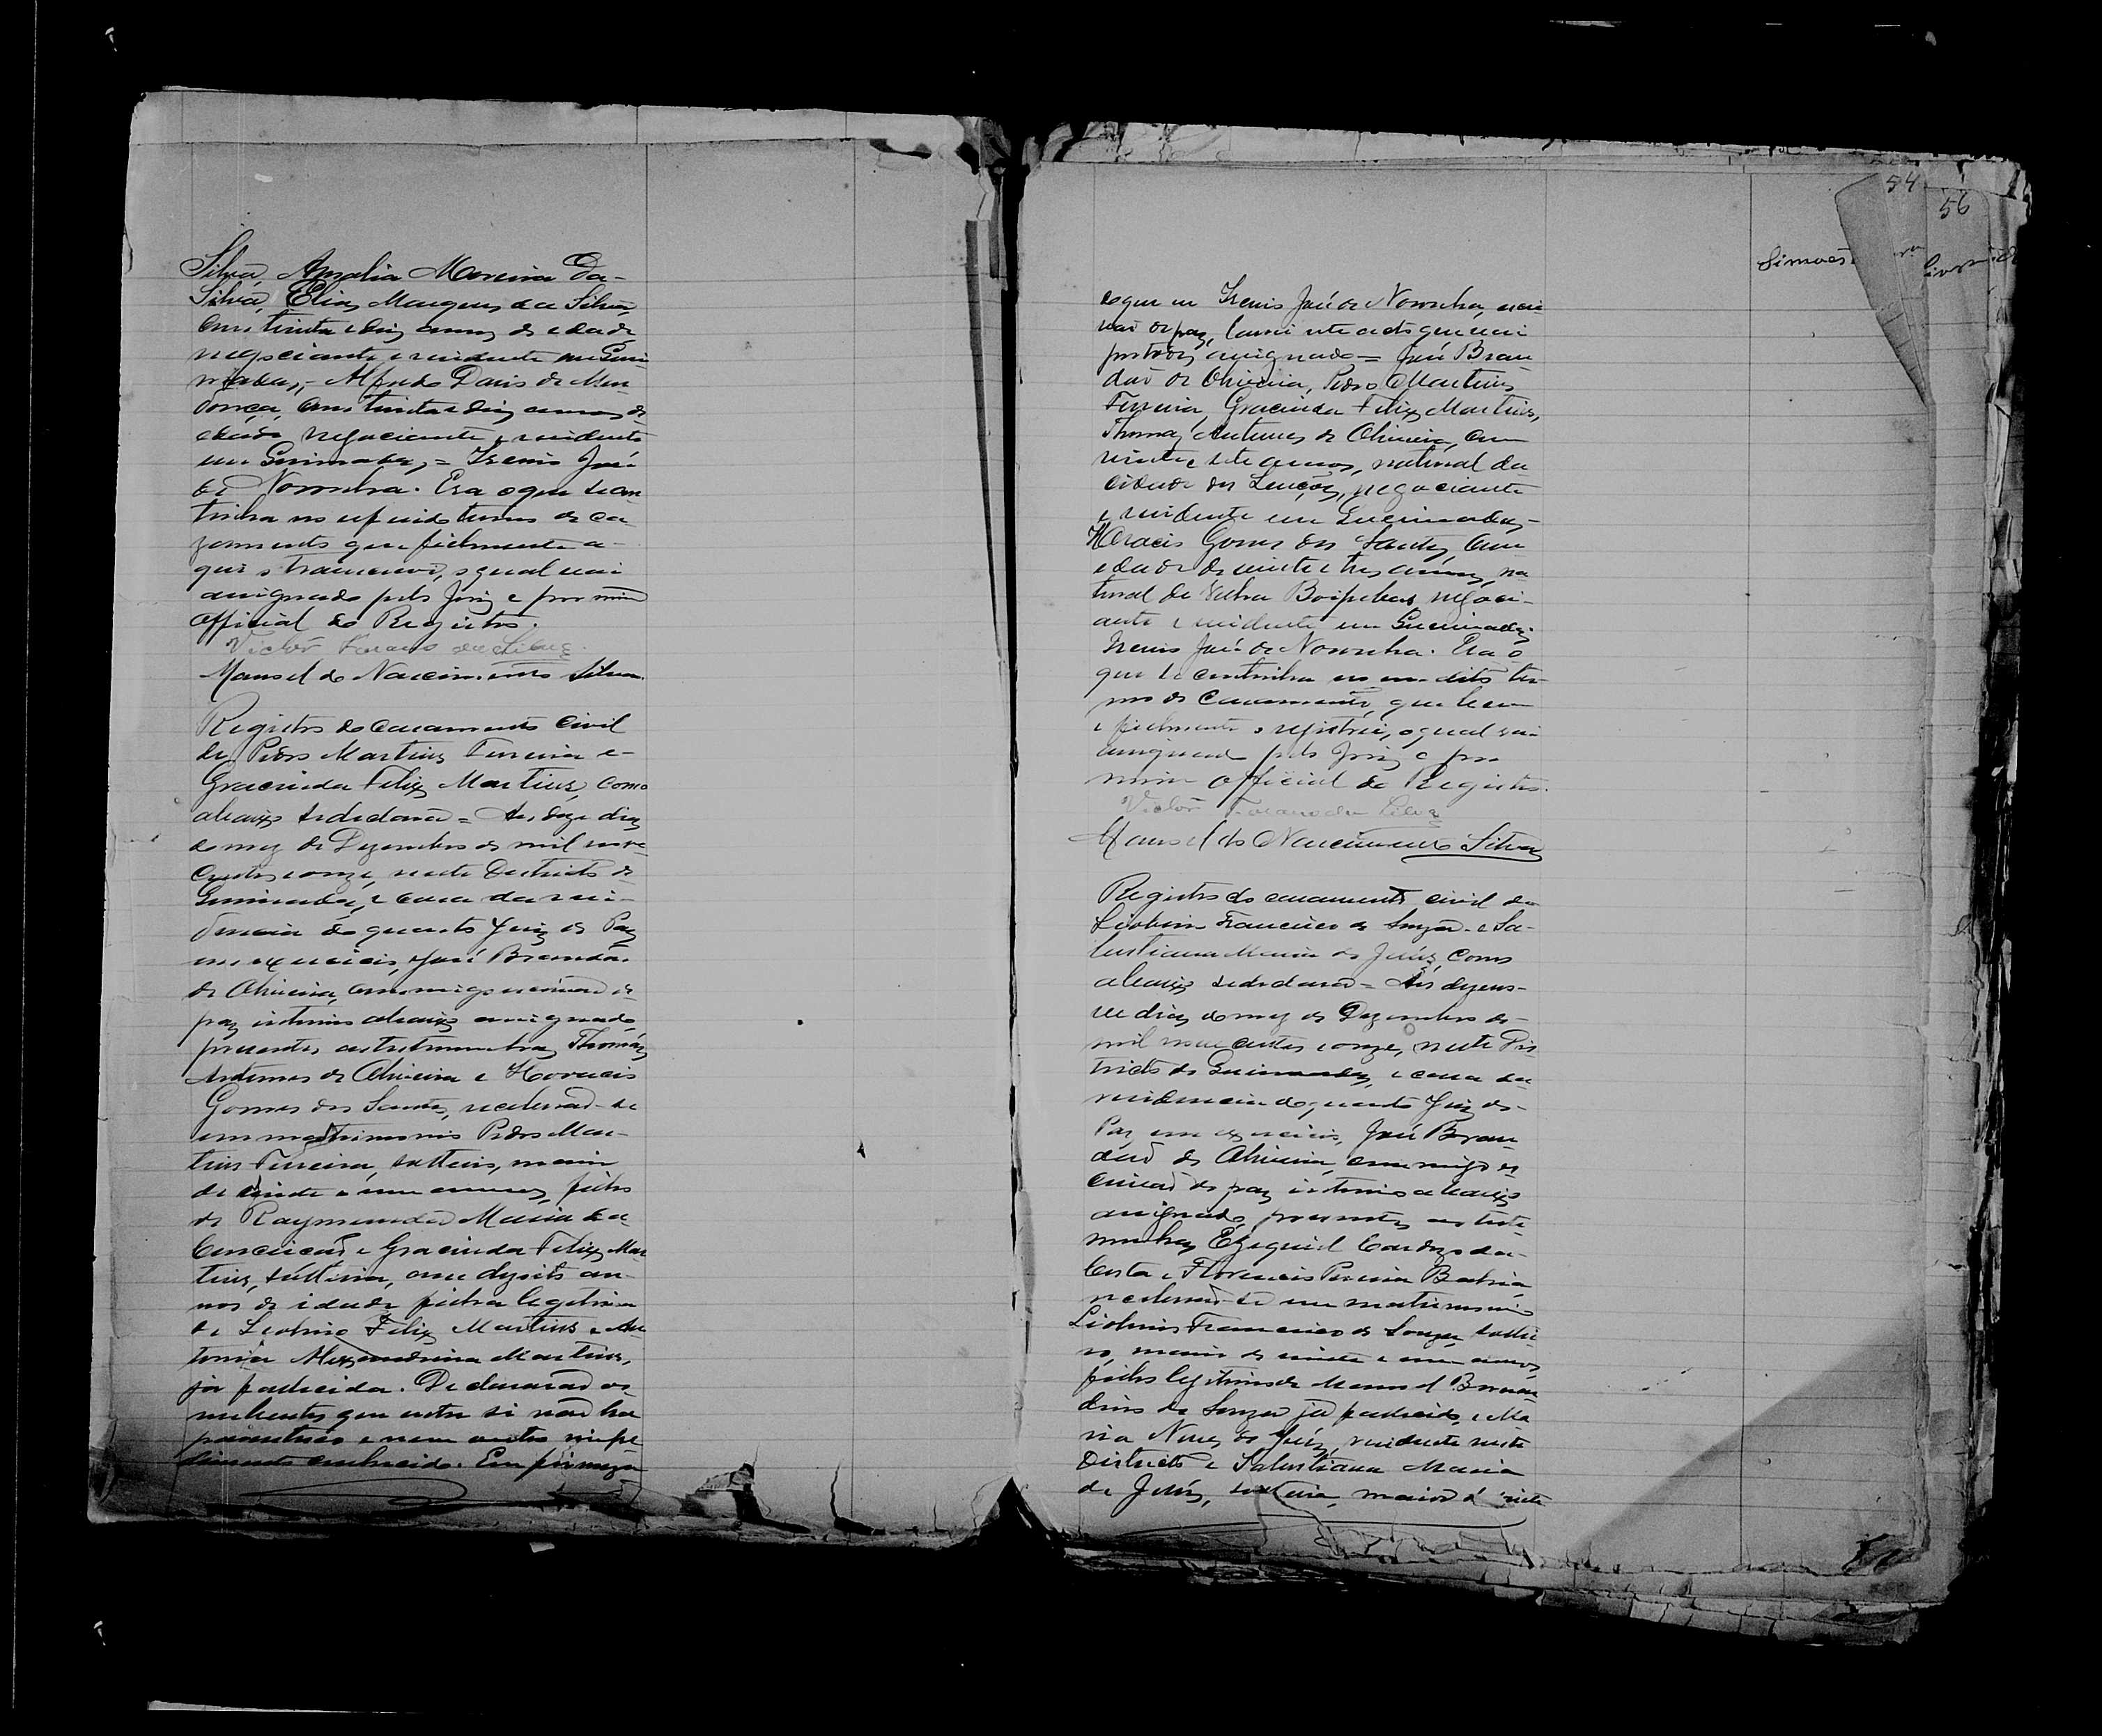 Silva, Amalia Moreira da
Silva, Elias Marques da Silva,
com trinta e dois annos de edade
negociante e residente em
Alfredo Daris de Men
donça, com trinta e dois annos de
edade negociante e residente
em = Irenio José
de Noronha. Era o que se con
tinha no referido termo de ca
zamento que fielmente a-
qui o transcrevi, o qual vai
assignado pelo Juiz e por mim
Official do Registro.
Victor da Silva
Manoel do Nascimento Silva.
Registro do casamento civil
de Pedro Martins Ferreira e
Gracinda Felix Martins, como
abaixo se declara = Aos doze dias
do mez de Dezembro de mil nove
centos e onze, neste Districto de
e casa da resi-
dencia do quarto Juiz de Paz
em exercicio, José Brandão
de Oliveira, commigo escrivão de
paz interino abaixo assignado,
presentes as testemunhas Thomáz
Antunes de Oliveira e Horacio
Gomes dos Santos, receberão-se
em matrimonio Pedro Mar-
tins Ferreira, solteiro, maior
de vinte e um annos, filho
de Raymunda Maria da
Conceicão e Gracinda Felix Mar
tins, solteira, com dezoito an-
nos de idade filha legitima
de Leolino Felix Martins e An
tonia Alexandrina Martins,
já fallecida. Declararão os
nubentes que entre si não ha
parentesco e nem outro impe
dimento conhecido. Em firmeza
54
56
Simões
do que eu Irenio José de Noronha, escri
vão de paz, lavrei este acto que vai
por todos assignado = José Bran
dão de Oliveira, Pedro Martins
Ferreira, Gracinda Felix Martins,
Thomaz Antunes de Oliveira, com
vinte e sete annos, natural da
cidade dos Lençóes, negociante
e residente em
Horacio Gomes dos Santos, com
edade de vinte e tres annos, na
tural de Velha Boipeba, negoci-
ante e residente em
Irenio José de Noronha. Era o
que se continha no dito ter
mo de casamento, que bem
e fielmente o registrei, o qual vai
assignado pelo Juiz e por
mim Official do Registro.
Victor da Silva
Manoel do Nascimento Silva
Registro do casamento civil de
Liobino Francisco de Souza e Sa-
lustiana Maria de Jesús, como
abaixo se declara = Aos dezeno-
ve dias do mez de Dezembro de
mil nove centos e onze, neste Dis
tricto de e casa da
residencia do quarto Juiz de
Paz em exercicio, José Bran
dão de Oliveira, commigo es
crivão de paz interino abaixo
assignado, presentes as teste
munhas Ezequiel Cardozo da
Costa e Florencio Pereira Bahia
receberão-se em matrimonio
Liobino Francisco de Souza soltei
ro, maior de vinte e um annos,
filho legitimo de Manoel Bernar
dino de Souza já fallecido, e Ma
ria Nunes de Jesús, residente neste
Districto e Salustiana Maria
de Jesús, solteira, maior de vinte